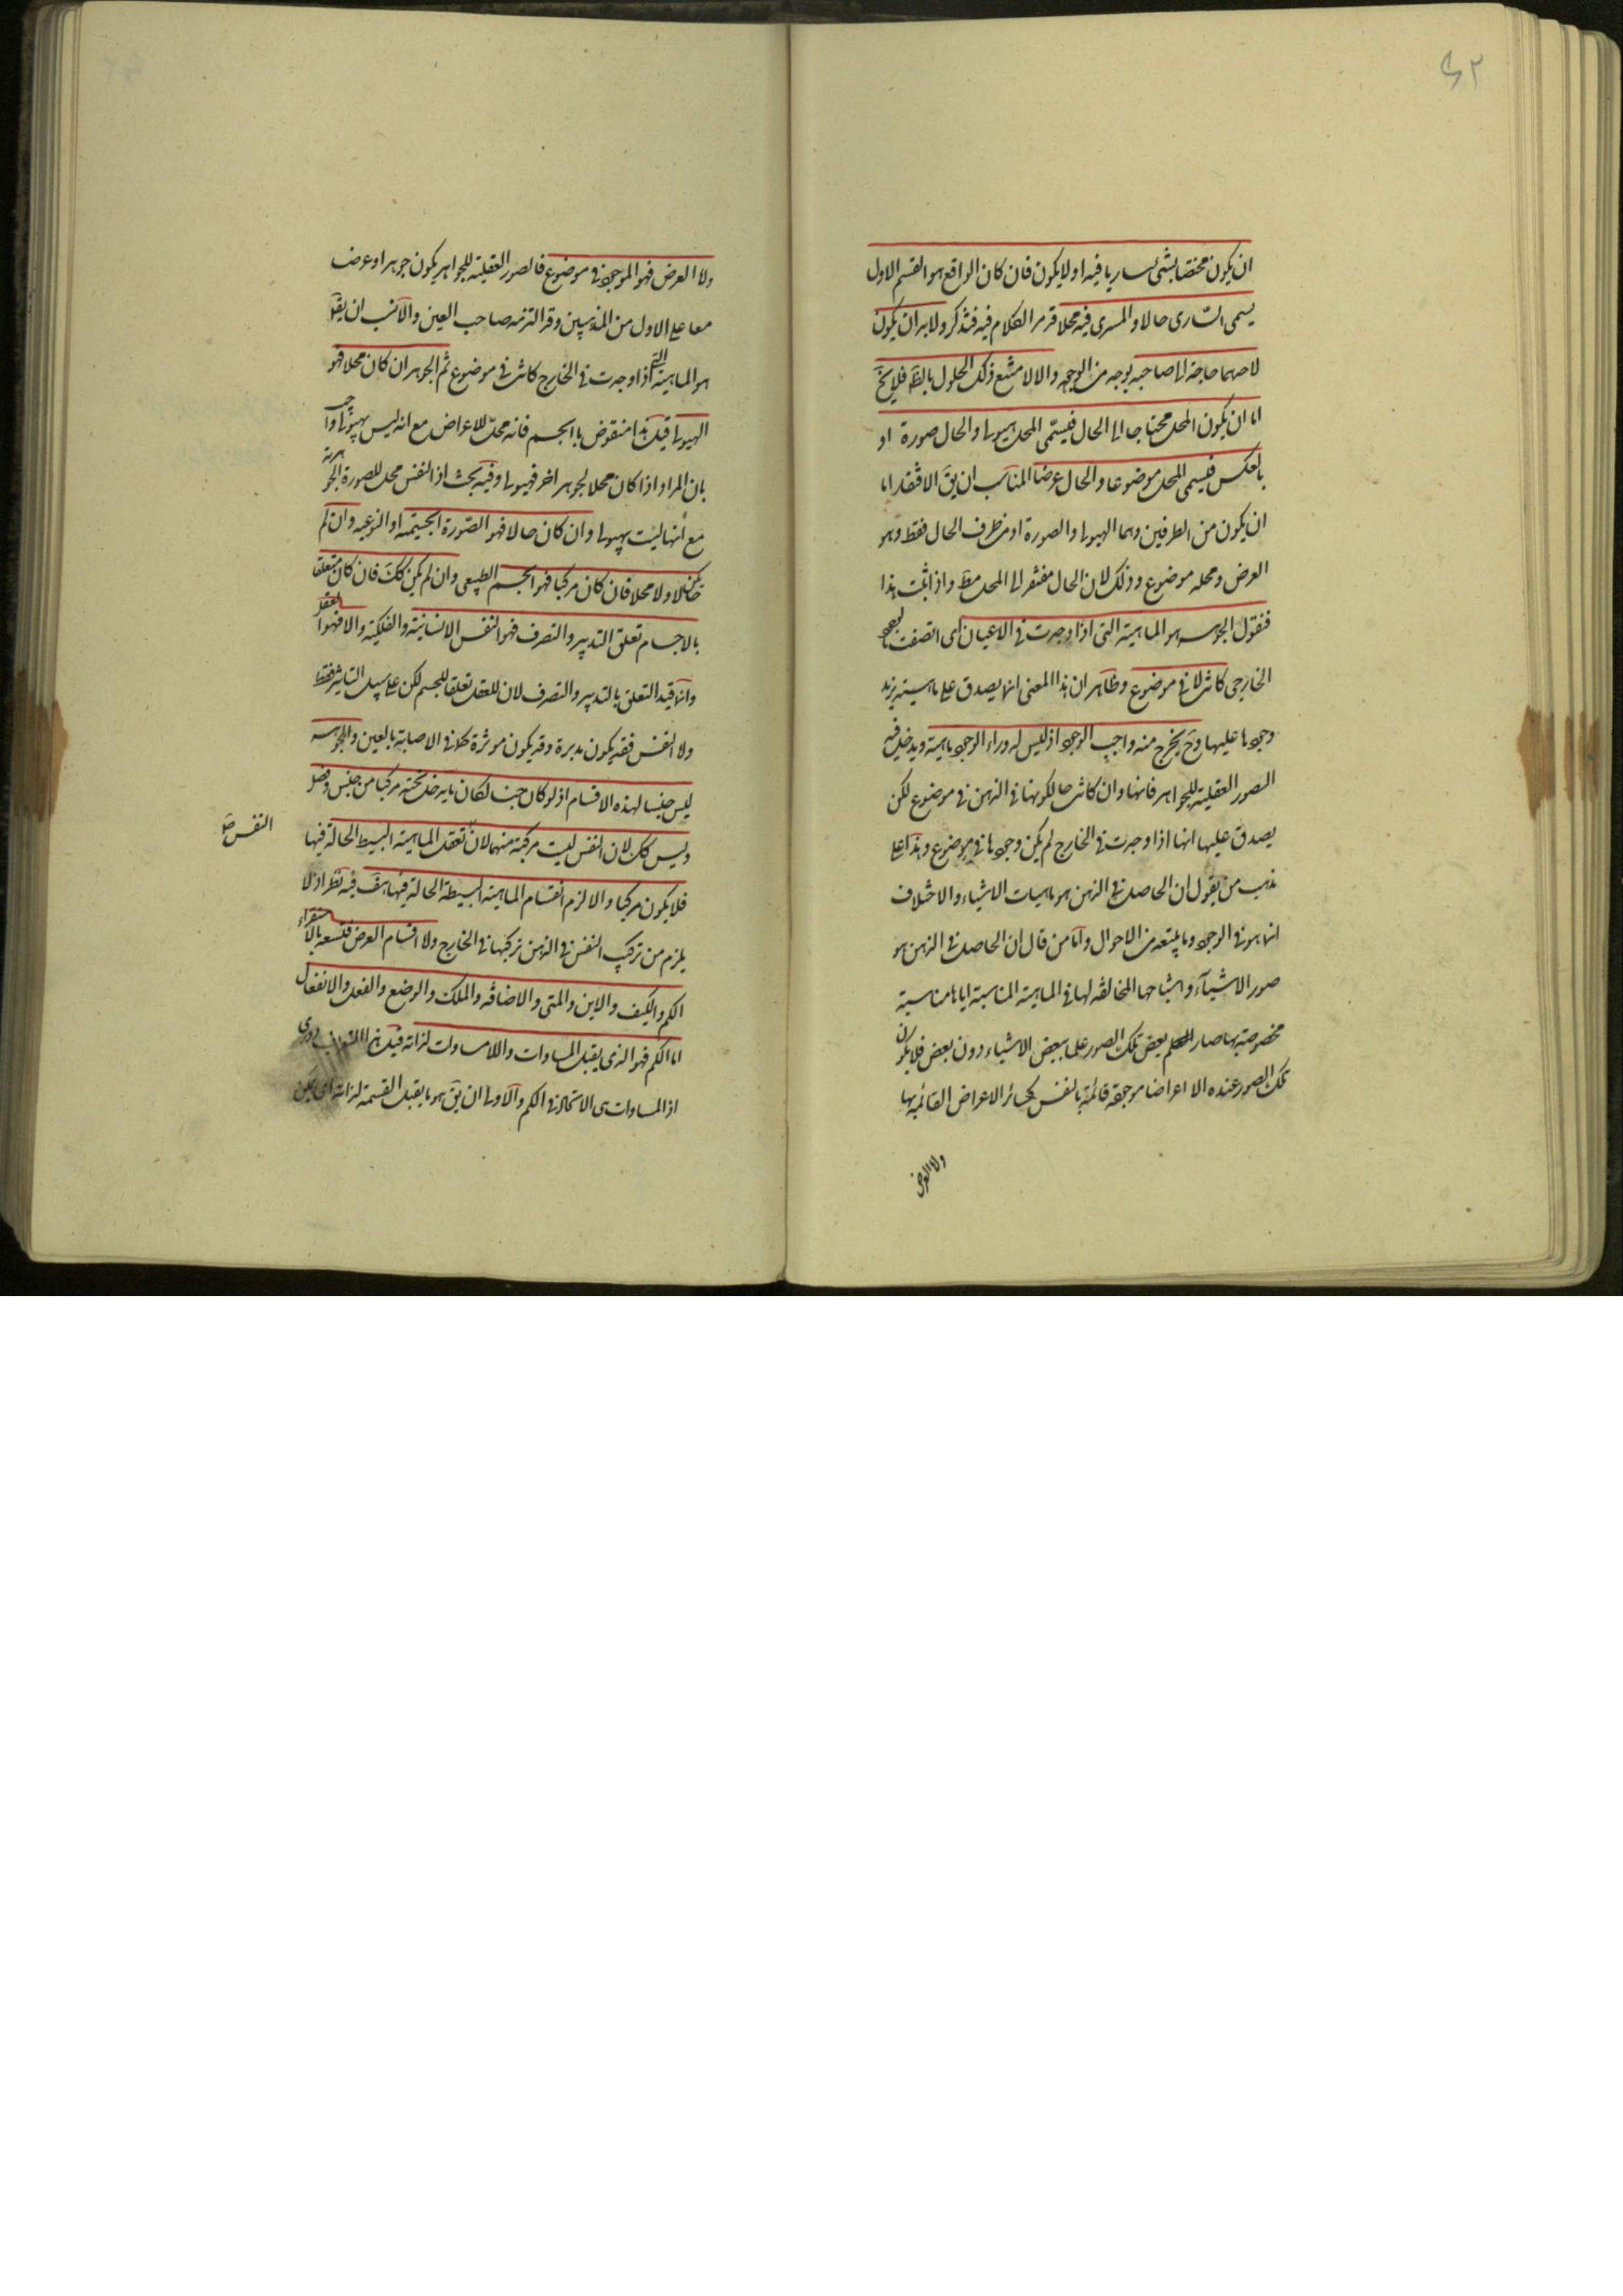 ٤٢
ان يكون مختصا بشئ ساريا فيه او لا يكون فان كان الواقع هو القسم الاول
يسمى السّارى حالا و المسرى فيه محلا قد مر الكلام فيه فتذكر ولا بد ان يكون
لاحدهما حاجة الى صاحبه بوجه من الوجوه والا لامتنع ذلك الحلول بالظ فلا يخ
اما ان يكون المحل محتاجا الى الحال فيسمّى المحل هيولى والحال صورة او
بالعكس فيسمى المحل موضوعا والحال عرضا المناسب ان يق الافتقار اما
ان يكون من الطرفين وهما الهيولى والصورة او من طرف الحال فقط وهو
العرض ومحله موضوع وذلك لان الحال مفتقر الى المحل مط واذا ثبت هذا
فنقول الجوهر هو الماهية التى اذا وجدت فى الاعيان اى اتصفت بالوجود
الخارجى كانت لا فى موضوع وظاهر ان هذا المعنى انما يصدق على ماهية يزيد
وجودها عليها وح يخرج منه واجب الوجود اذ ليس له وراء الوجود ماهية ويدخل فيه
الصور العقلية للجواهر فانها وان كانت حالكونها فى الذهن فى موضوع لكن
يصدق عليها انها اذا وجدت فى الخارج لم يكن وجودها فى موضوع وهذا على
مذهب من يقول ان الحاصل فى الذهن هو ماهيات الاشياء والاختلاف
انما هو فى الوجود وما يتبعه من الاحوال واما من قال ان الحاصل فى الذهن هو
صور الاشيآء واشباحها المخالفة لها فى الماهية المناسبة اياها مناسبة
مخصوصة بها صار بعض تلك الصور علما ببعض الاشياء دون بعض فلا يكون
تلك الصور عنده الا اعراضا موجودة قائمة بالنفس كسائر الاعراض القائمة بها
ولا العرض
ولا العرض فهو الموجود فى موضوع فالصور العقلية للجواهر يكون جوهرا وعرضا
معا على الاول من المذهبين وقد التزمه صاحب العين والانسب ان يق
هو الماهية التى اذا وجدت فى الخارج كانت فى موضوع ثم الجوهر ان كان محلا فهو
الهيولى قيل هذا منقوض بالجسم فانه محل للاعراض مع انه ليس بهيولى واجيب
بان المراد اذا كان محلا لجوهر اخر فهيولى وفيه بحث اذ النفس محل للصورة الجوهرية
مع انها ليست بهيولى وان كان حالا فهو الصّورة الجسيتمة او النوعيه وان لم
يكن حالا ولا محلا فان كان مركبا فهو الجسم الطبيعى وان لم يكن كك فان كان متعلقا
بالاجسام تعلق التدبير والتصرف فهو النفس الانسانية والفلكية والا فهو العقل
وانما قيد التعلق بالتدبير والتصرف لان للعقل تعلقا للجسم لكن على سبيل التاثير فقط
ولا النفس فقد يكون مدبرة وقد يكون موثرة كما فى الاصابة بالعين والجوهر
ليس جنسا لهذه الاقسام اذ لو كان جنسا لكان ما يدخل تحته مركبا من جنس وفصل
وليس كك لان النفس ليست مركبة منهما لان تعقل الماهية البسيط الحالة فيها
النفس صح
فلا يكون مركبا والا لزم انقسام الماهية البسيطة الحالة فيها هف فيه نظر اذ لا
يلزم من تركيب النفس فى الذهن تركبها فى الخارج ولا اقسام العرض فتسعه بالاستقراء
الكم والكيف والاين والمتى والاضافه والملك والوضع والفعل والانفعال
اما الكم فهو الذى يقبل المساوات واللامساوات لذاته قيل هذا التعريف دورى
اذ المساوات هى الاتحاد فى الكم والاولى ان يق هو ما يقبل القسمة لذاته اى يمكن